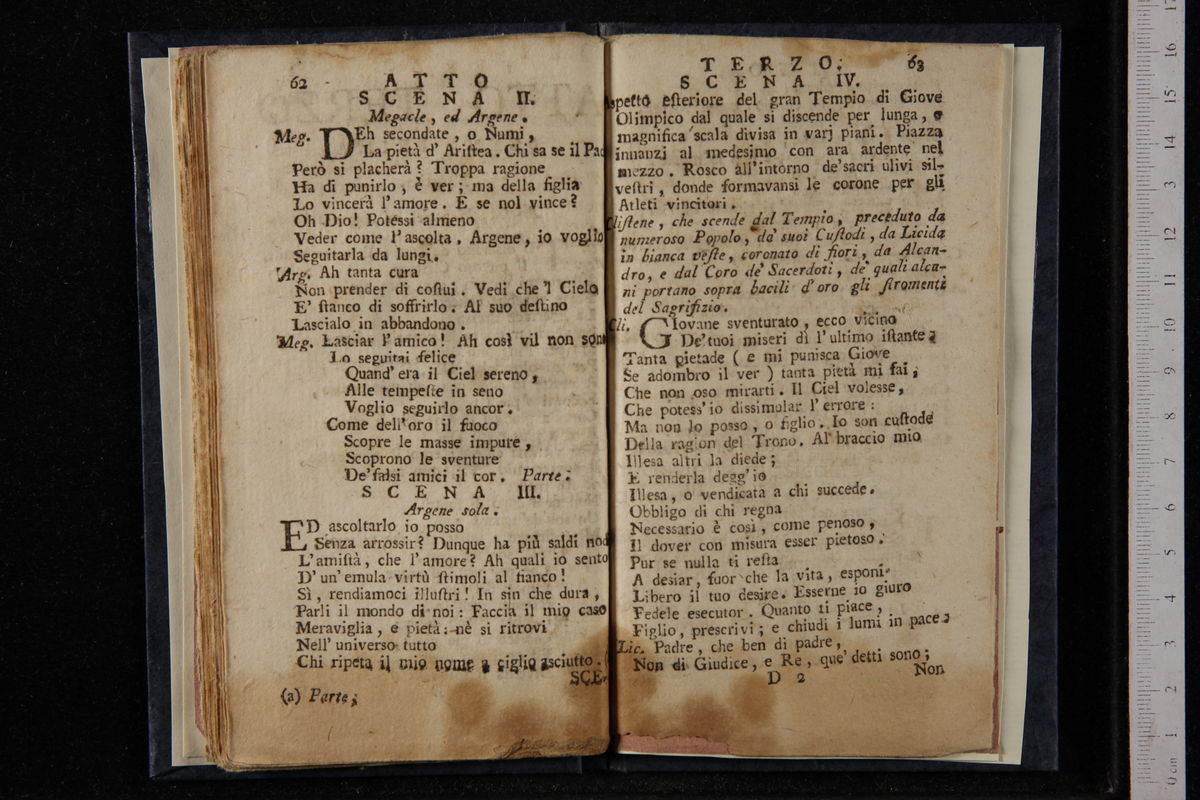 62 ATTO
SCENA II.
Megacle, ed Argene.
Meg. DEh secondate, o Numi,
La pietà d' Aristea. Chi sa se il Pad
Però si placherà? Troppa ragione
Ha di punirlo, è ver; ma della figlia
Lo vincerà l'amore. E se nol vince?
Oh Dio! Potessi almeno
Veder come l'ascolta. Argene, io voglio
Seguitarla da lungi.
Arg. Ah tanta cura
Non prender di costui. Vedi che 'l Cielo
E' stanco di soffrirlo. Al suo destino
Lascialo in abbandono.
Meg. Lasciar l'amico! Ah così vil non sono
Lo seguitai felice
Quand' era il Ciel sereno,
Alle tempeste in seno
Voglio seguirlo ancor.
Come dell'oro il fuoco
Scopre le masse impure,
Scoprono le sventure
De'falsi amici il cor. Parte.
SCENA III.
Argene sola.
ED ascoltarlo io posso
Senza arrossir? Dunque ha più saldi nod
L'amistà, che l'amore? Ah quali io sento
D' un'emula virtù stimoli al fianco!
Sì, rendiamoci illustri! In sin che dura,
Parli il mondo di noi: Faccia il mio caso
Meraviglia, e pietà: nè si ritrovi
Nell' universo tutto
Chi ripeta il mio nome a ciglio asciutto. (
SCE-
(a) Parte;
TERZO. 63
SCENA IV.
Aspetto esteriore del gran Tempio di Giove
Olimpico dal quale si discende per lunga, e
magnifica scala divisa in varj piani. Piazza
innanzi al medesimo con ara ardente nel
mezzo. Rosco all'intorno de'sacri ulivi sil-
vestri, donde formavansi le corone per gli
Atleti vincitori.
Clistene, che scende dal Tempio, preceduto da
numeroso Popolo, da' suoi Custodi, da Licida
in bianca veste, coronato di fiori, da Alcan-
dro, e dal Coro de' Sacerdoti, de' quali alcu-
ni portano sopra bacili d'oro gli stromenti
del Sagrifizio.
Cli. GIovane sventurato, ecco vicino
De'tuoi miseri dì l'ultimo istante;
Tanta pietade ( e mi punisca Giove
Se adombro il ver ) tanta pietà mi fai,
Che non oso mirarti. Il Ciel volesse,
Che potess'io dissimular l'errore:
Ma non lo posso, o figlio. Io son custode
Della ragion del Trono. Al braccio mio
Illesa altri la diede;
E renderla degg'io
Illesa, o vendicata a chi succede.
Obbligo di chi regna
Necessario è così, come penoso,
Il dover con misura esser pietoso.
Pur se nulla ti resta
A desiar, fuor che la vita, esponi
Libero il tuo desire. Esserne io giuro
Fedele esecutor. Quanto ti piace,
Figlio, prescrivi; e chiudi i lumi in pace.
Lic. Padre, che ben di padre,
Non di Giudice, e Re, que' detti sono;
D 2 Non